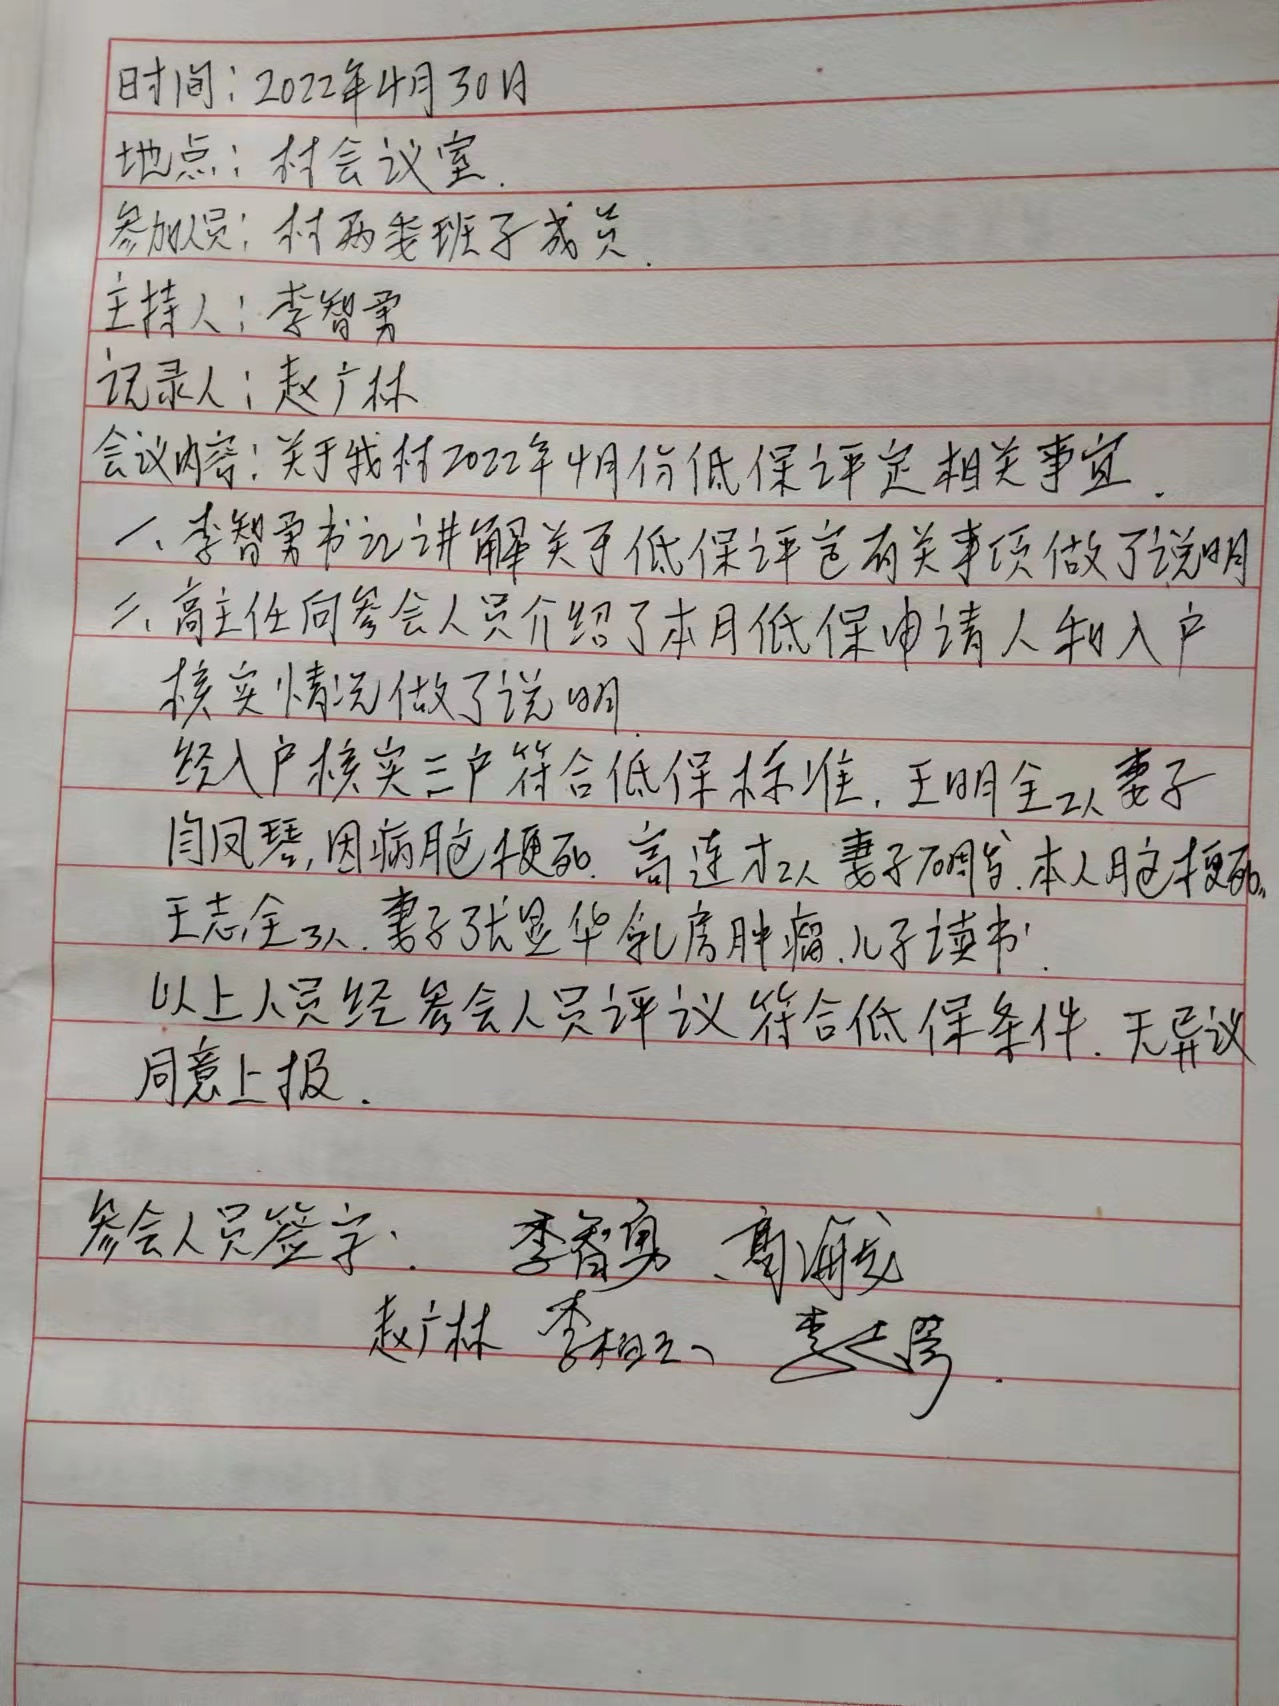 时间：2022年4月30日
地点：村会议室.
参加人员：村两委班子成员.
主持人：李智勇
记录人：赵广林
会议内容：关于我村2022年4月份低保评定相关事宜.
一、李智勇书记讲解关于低保评定有关事项做了说明
二、高主任向参会人员介绍了本月低保申请人和入户
核实情况做了说明.
经入户核实三户符合低保标准.王明全2人妻子
闫凤琴,因病脑梗死.高连才2人妻子70周岁.本人脑梗死.
王志全3人.妻子张显华乳房肿瘤.儿子读书.
以上人员经参会人员评议符合低保条件.无异议
同意上报.
参会人员签字：李智勇、高海
赵广林 李柏